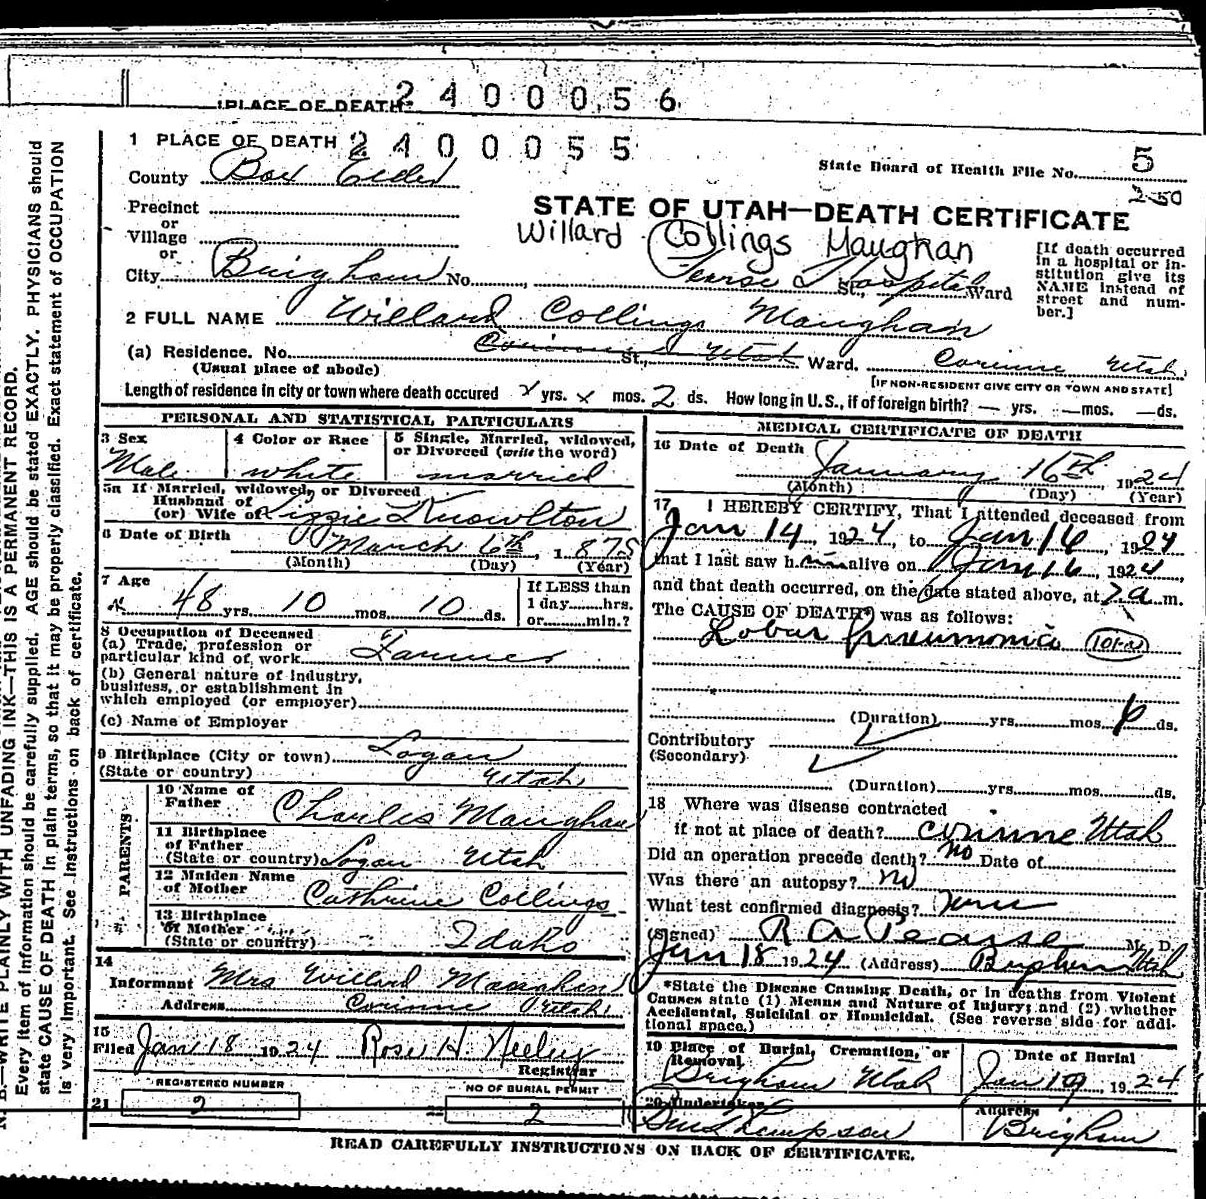 PLACE OF DEATH 2400056
1 PLACE OF DEATH 2400055
State Board of Health File No. 5
250
County Box Elder
Precinct
or
Village
or
City Brigham No. Pearse Hospital St., Ward
STATE OF UTAH—DEATH CERTIFICATE
Willard Collings Maughan
[If death occurred in a hospital or institution give its NAME instead of street and number.]
2 FULL NAME Willard Collings Maughan
(a) Residence. No. Corinne St., Utah Ward. Corinne Utah
(Usual place of abode) [IF NON-RESIDENT GIVE CITY OR TOWN AND STATE]
Length of residence in city or town where death occured x yrs. x mos. 2 ds. How long in U.S., if of foreign birth? — yrs. — mos. — ds.
PERSONAL AND STATISTICAL PARTICULARS
3 Sex Male
4 Color or Race white
5 Single, Married, widowed, or Divorced (write the word) married
5a If Married, widowed, or Divorced
Husband of
(or) Wife of Lizzie Knowlton
6 Date of Birth March 6th, 1875
(Month) (Day) (Year)
7 Age 48 yrs. 10 mos. 10 ds.
If LESS than 1 day......hrs. or......min.?
8 Occupation of Deceased
(a) Trade, profession or particular kind of work Farmer
(b) General nature of industry, business, or establishment in which employed (or employer)
(c) Name of Employer
9 Birthplace (City or town) Logan
(State or country) Utah
PARENTS
10 Name of Father Charles Maughan
11 Birthplace of Father (State or country) Logan Utah
12 Maiden Name of Mother Cathrine Collings
13 Birthplace of Mother (State or country) Idaho
14
Informant Mrs Willard Maughan
Address Corinne Utah
15
Filed Jan 18 1924 Rose H. Neeley
Registrar
REGISTERED NUMBER
NO OF BURIAL PERMIT
21 2
22 2
MEDICAL CERTIFICATE OF DEATH
16 Date of Death January 16th 1924
(Month) (Day) (Year)
17 I HEREBY CERTIFY, That I attended deceased from
Jan 14, 1924, to Jan 16, 1924
that I last saw him alive on Jan 16, 1924,
and that death occurred, on the date stated above, at 7 a m.
The CAUSE OF DEATH* was as follows:
Lobar Pneumonia 101-a
(Duration) yrs. mos. 6 ds.
Contributory
(Secondary)
(Duration) yrs. mos. ds.
18 Where was disease contracted
if not at place of death? Corinne Utah
Did an operation precede death? no Date of
Was there an autopsy? no
What test confirmed diagnosis?
(Signed) R A Pearse M. D.
Jan 18 1924 (Address) Brigham Utah
*State the Disease Causing Death, or in deaths from Violent Causes state (1) Means and Nature of Injury; and (2) whether Accidental, Suicidal or Homicidal. (See reverse side for additional space.)
19 Place of Burial, Cremation, or Removal Brigham Utah
Date of Burial Jan 19, 1924
20 Undertaker Thompson
Address Brigham
READ CAREFULLY INSTRUCTIONS ON BACK OF CERTIFICATE.
N. B.—WRITE PLAINLY WITH UNFADING INK—THIS IS A PERMANENT RECORD.
Every item of information should be carefully supplied. AGE should be stated EXACTLY. PHYSICIANS should
state CAUSE OF DEATH in plain terms, so that it may be properly classified. Exact statement of OCCUPATION
is very important. See instructions on back of certificate.